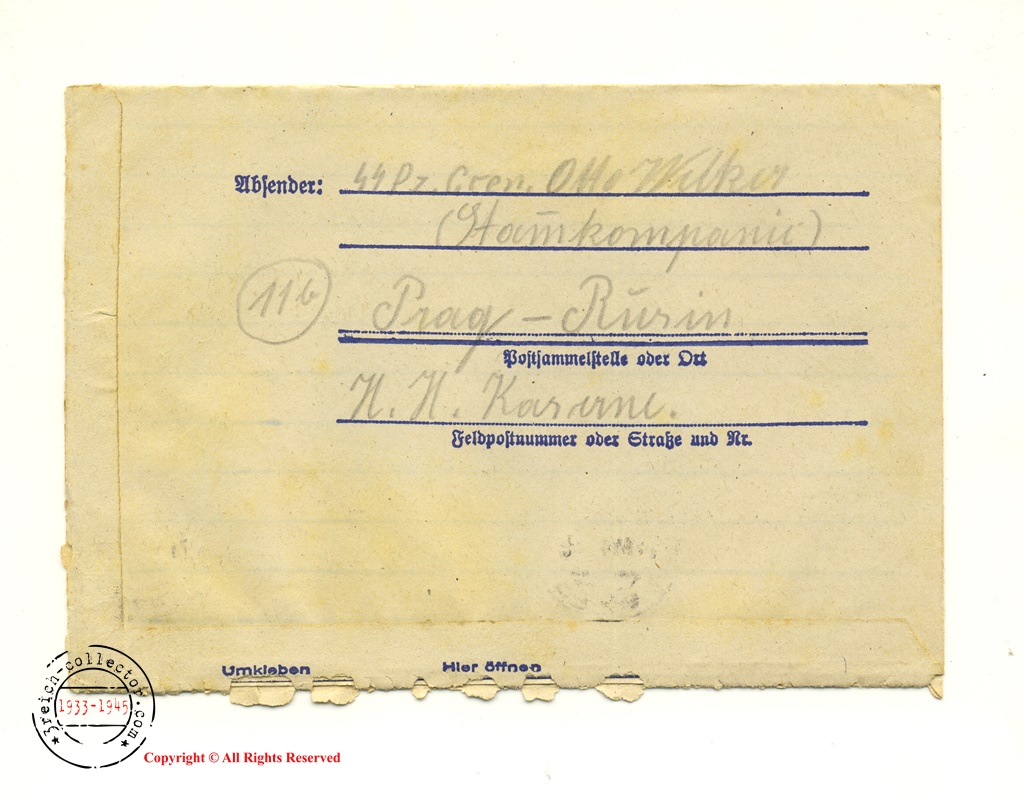 Absender: SS Pz. Gren. Otto Wilker
(Stam̄kompanie)
11b
Prag - Rŭsin
Postsammelstelle oder Ort
H. H. Kaserne.
Feldpostnummer oder Straße und Nr.
Umkleben Hier öffnen
3reich-collector.com
1933-1945
Copyright © All Rights Reserved